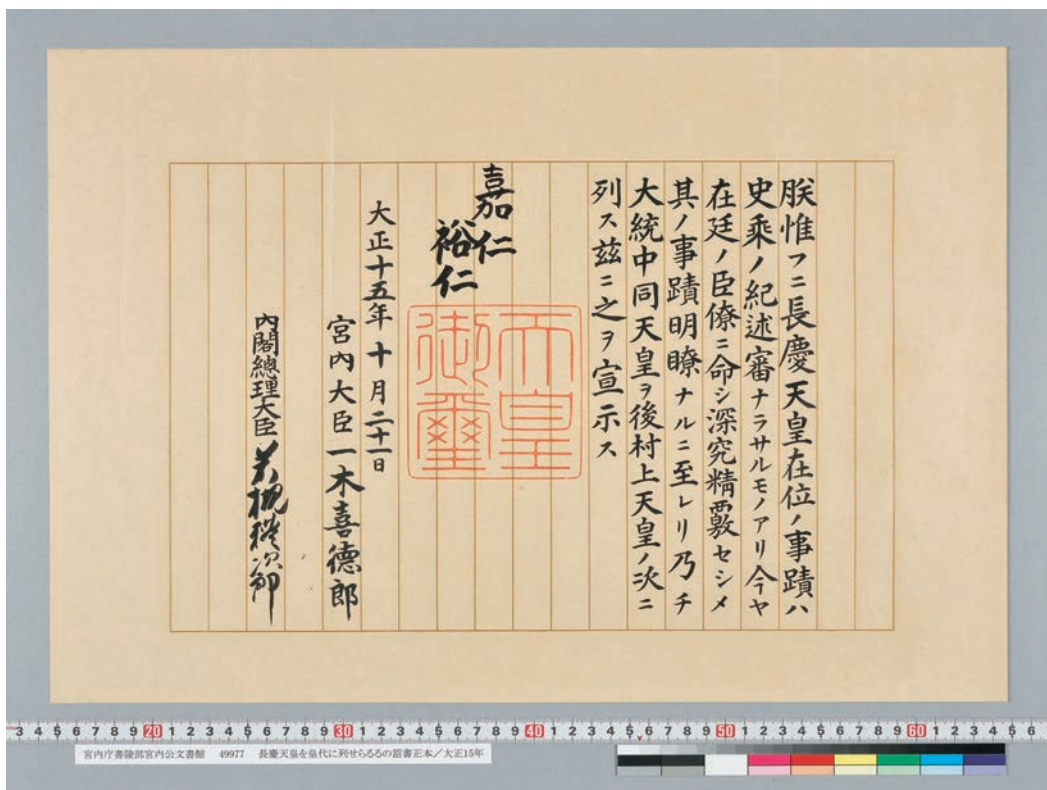 朕惟フニ長慶天皇在位ノ事蹟ハ
史乘ノ紀述審ナラサルモノアリ今ヤ
在廷ノ臣僚ニ命シ深究精覈セシメ
其ノ事蹟明瞭ナルニ至レリ乃チ
大統中同天皇ヲ後村上天皇ノ次ニ
列ス茲ニ之ヲ宣示ス
嘉仁
裕仁
天皇
御璽
大正十五年十月二十一日
宮內大臣一木喜德郎
內閣總理大臣若槻禮次郎
3 4 5 6 7 8 9 20 1 2 3 4 5 6 7 8 9 30 1 2 3 4 5 6 7 8 9 40 1 2 3 4 5 6 7 8 9 50 1 2 3 4 5 6 7 8 9 60 1 2 3 4 5 6
宮内庁書陵部宮内公文書館 49977 長慶天皇を皇代に列せらるるの詔書正本/大正15年